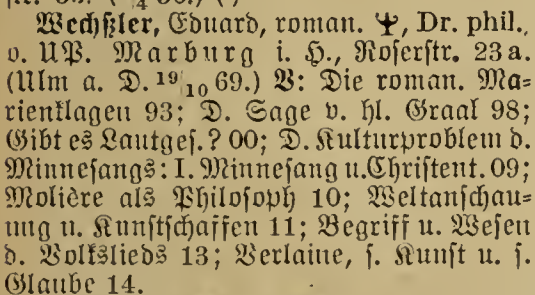 Wechßler, Eduard, roman. Ψ, Dr. phil.,
o. UP. Marburg i. H., Roserstr. 23a.
(Ulm a. D. 19/10 69.) V: Die roman. Ma=
rienklagen 93; D. Sage v. hl. Graal 98;
Gibt es Lautges.? 00; D. Kulturproblem d.
Minnesangs: I. Minnesang u. Christent. 09;
Molière als Philosoph 10; Weltanschau=
ung u. Kunstschaffen 11; Begriff u. Wesen
d. Volkslieds 13; Verlaine, s. Kunst u. s.
Glaube 14.